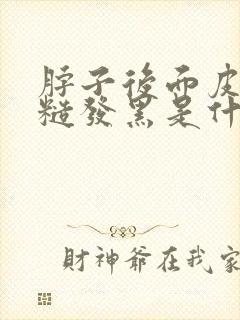 脖子後面皮
糙發黑是什
財神爺在我家